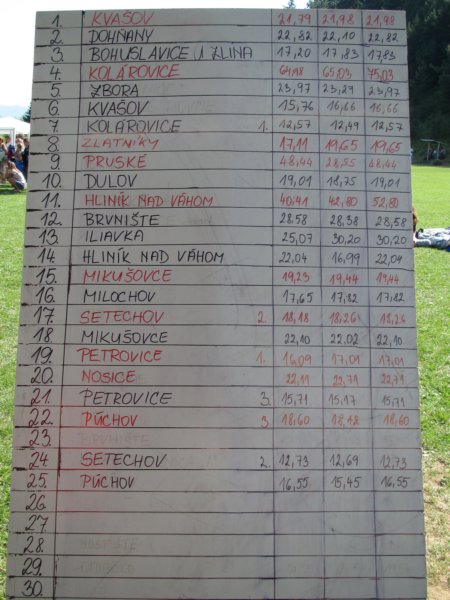 1. KVAŠOV 21,79 21,98 21,98
2. DOHŇANY 22,82 22,10 22,82
3. BOHUSLAVICE U ZLÍNA 17,20 17,83 17,83
4. KOLÁROVICE 64,98 65,03 75,03
5. ZBORA 23,97 23,29 23,97
6. KVAŠOV 15,76 16,66 16,66
7. KOLÁROVICE 1. 12,57 12,49 12,57
8. ZLATNÍKY 17,11 19,65 19,65
9. PRUSKÉ 48,44 28,55 48,44
10. DULOV 19,01 18,75 19,01
11. HLINÍK NAD VÁHOM 40,41 42,80 52,80
12. BRVNIŠTE 28,58 28,38 28,58
13. ILIAVKA 25,07 30,20 30,20
14. HLINÍK NAD VÁHOM 22,04 16,99 22,04
15. MIKUŠOVCE 19,23 19,44 19,44
16. MILOCHOV 17,65 17,82 17,82
17. SETECHOV 2. 18,18 18,26 18,26
18. MIKUŠOVCE 22,10 22,02 22,10
19. PETROVICE 1. 16,09 17,01 17,01
20. NOSICE 22,11 22,71 22,71
21. PETROVICE 3. 15,71 15,17 15,71
22. PÚCHOV 3. 18,60 18,42 18,60
23. BRVNIŠTE
24. SETECHOV 2. 12,73 12,69 12,73
25. PÚCHOV 16,55 15,45 16,55
26.
27.
28.
29.
30.